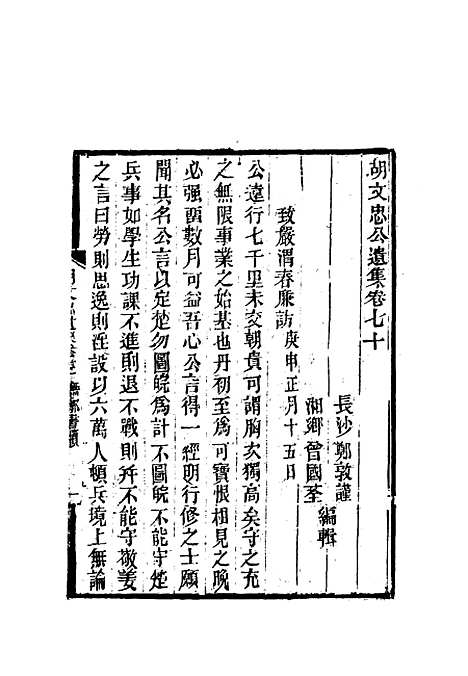 胡文忠公遺集卷七十
長沙鄭敦謹
湘鄉曾國荃
編輯
致嚴渭春廉訪庚申正月十五日
公遠行七千里未交朝貴可謂胸次獨高矣守之充
之無限事業之始基也丹初至爲可寶恨相見之晚
必强留數月可益吾心公言得一經明行修之士願
聞其名公言以定楚勿圖皖爲計不圖皖不能守楚
兵事如學生功課不進則退不戰則并不能守敬姜
之言曰勞則思逸則淫設以六萬人頓兵境上無論